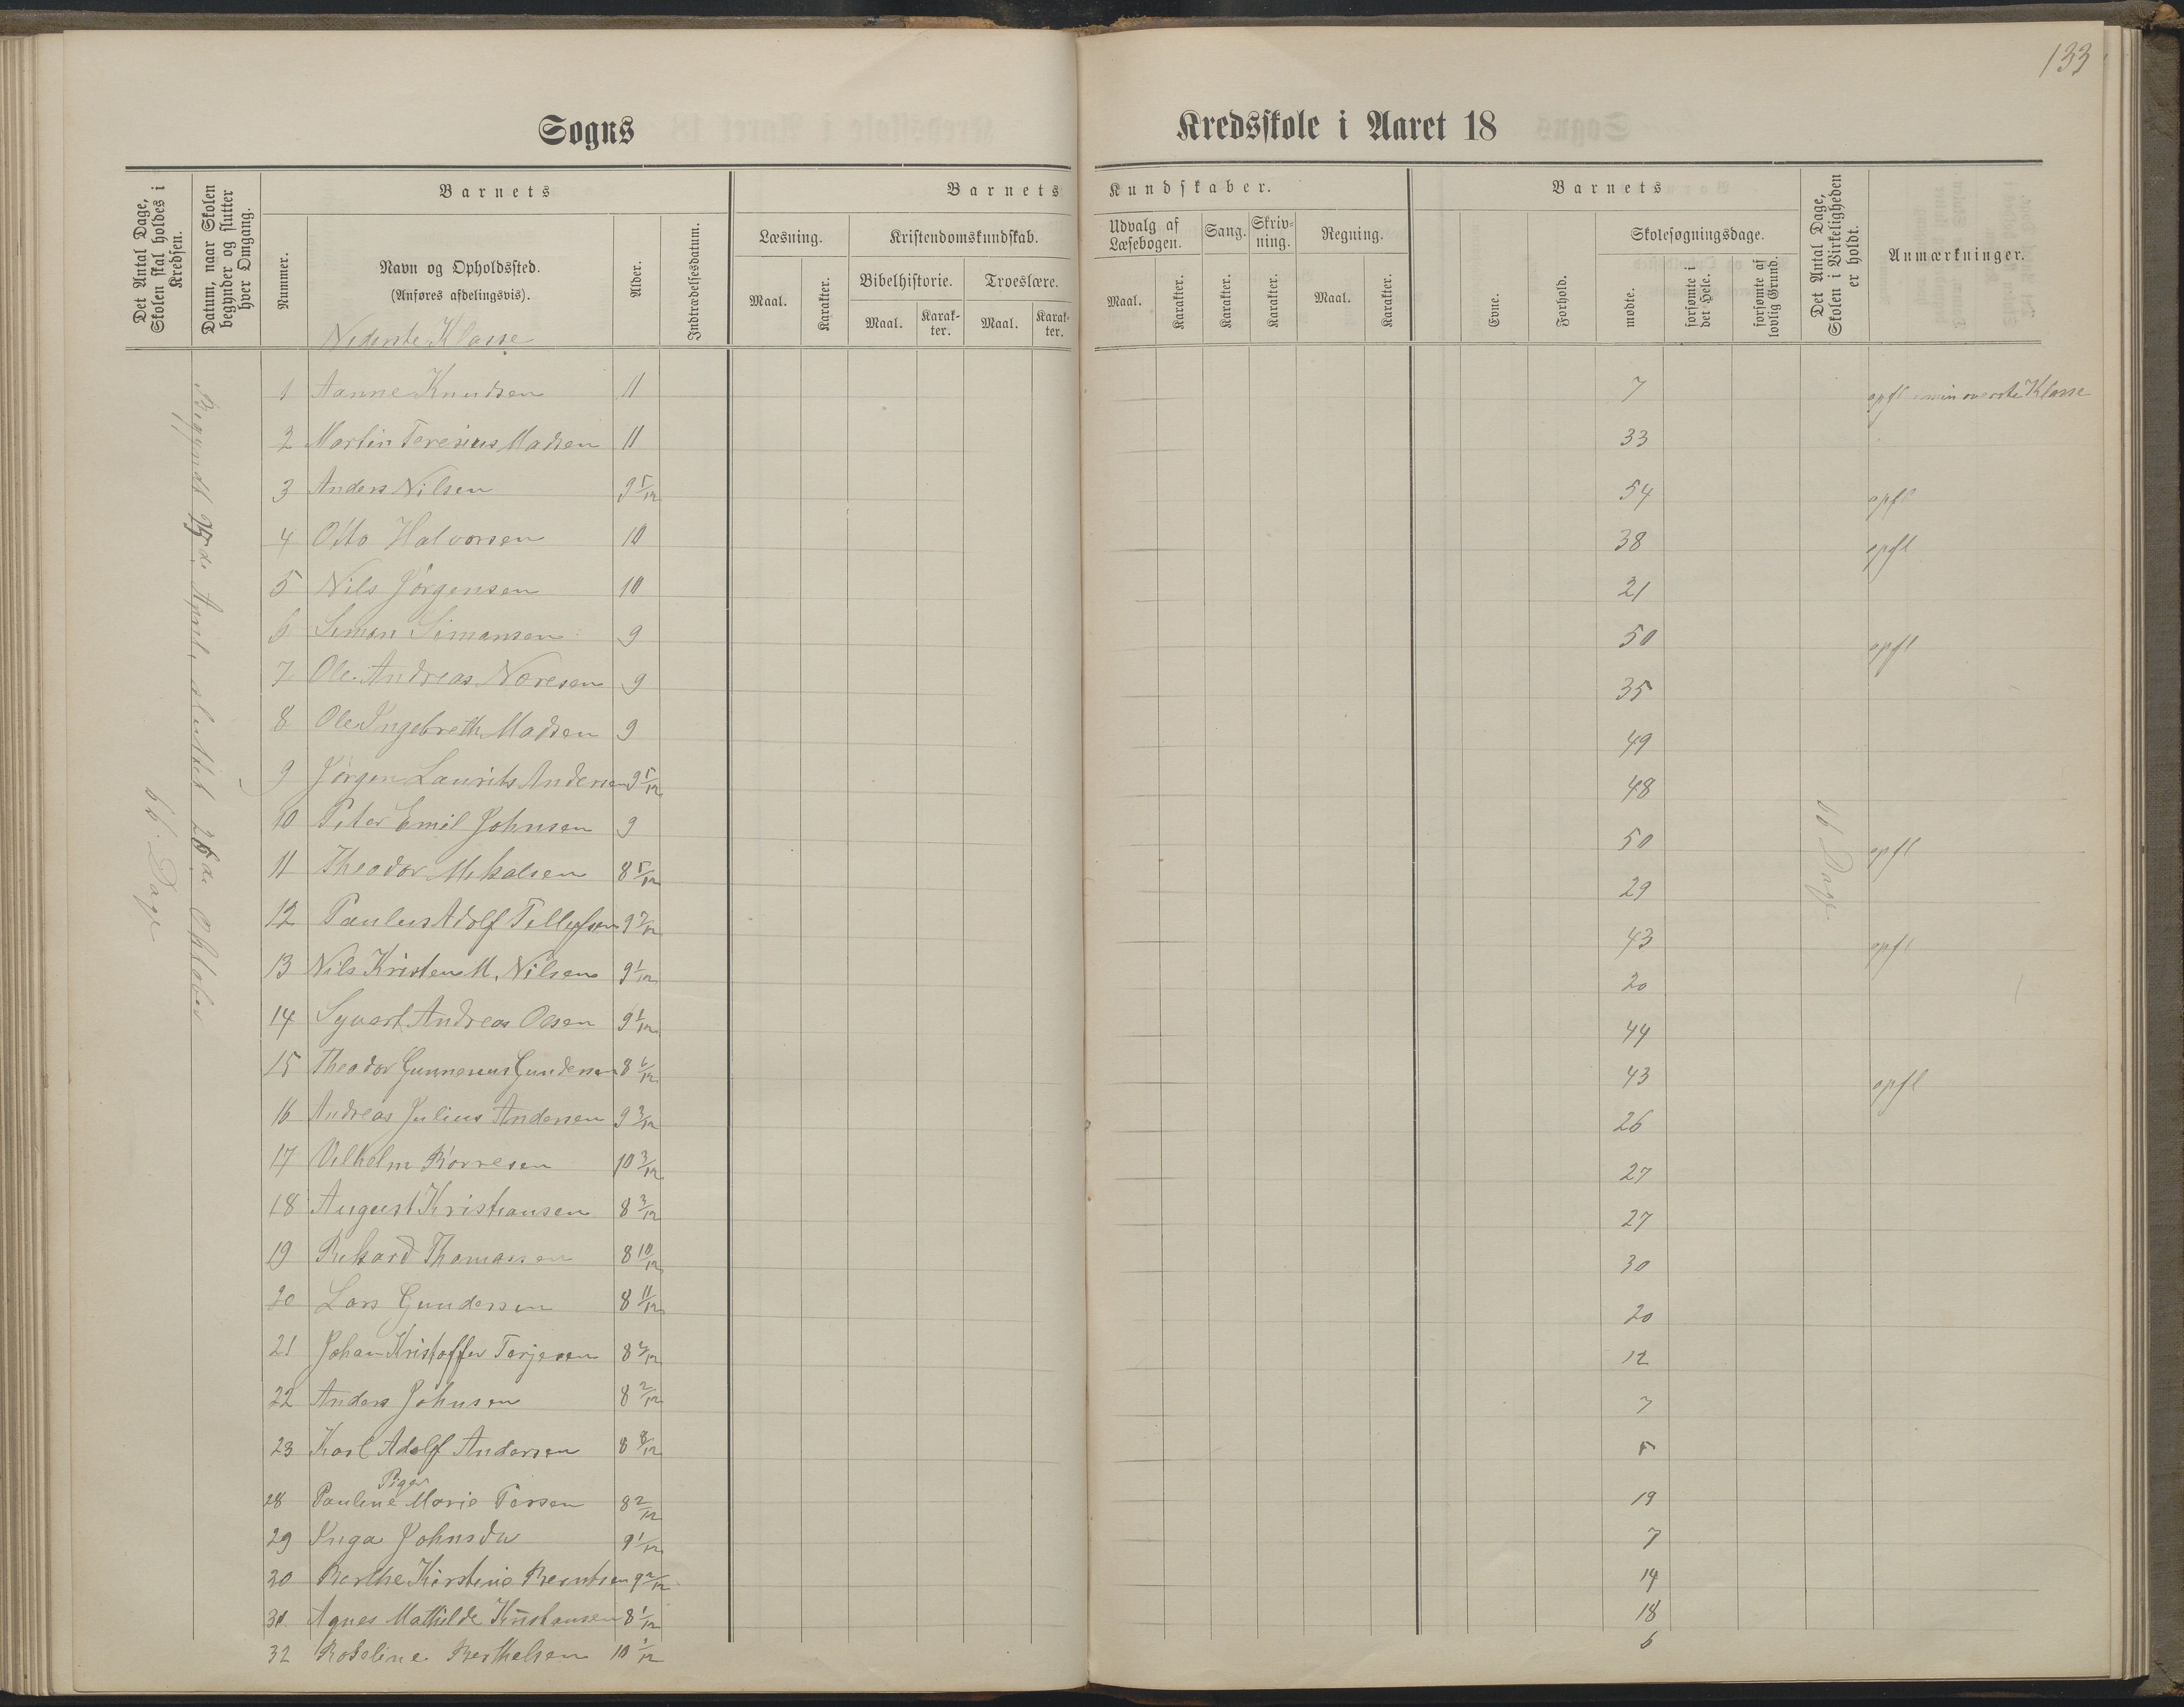 133
Sogns Kredsskole i Aaret 18
Det Antal Dage, Skolen skal holdes i Kredsen.
Datum, naar Skolen begynder og slutter hver Omgang.
Barnets
Nummer.
Navn og Opholdssted.
(Anføres afdelingsvis).
Alder.
Indtrædelsesdatum.
Barnets Kundskaber.
Læsning.
Maal.
Karakter.
Kristendomskundskab.
Bibelhistorie.
Maal.
Karakter.
Troeslære.
Maal.
Karakter.
Udvalg af Læsebogen.
Maal.
Karakter.
Sang.
Karakter.
Skrivning.
Karakter.
Regning.
Maal.
Karakter.
Barnets
Evne.
Forhold.
Skolesøgningsdage.
mødte.
forsømte i det Hele.
forsømte af lovlig Grund.
Det Antal Dage, Skolen i Virkeligheden er holdt.
Anmærkninger.
Nederste Klasse
de April, sluttet de Oktober
Dage
Dage
1 Aanne Knudsen 11 7 opfl øverste Klasse
2 Martin Teresius Madsen 11 33
3 Anders Nilsen 9 5/12 54 opfl
4 Otto Halvorsen 10 38 opfl
5 Nils Jörgensen 10 21
6 Simon Simonsen 9 50 opfl
7 Ole Andreas Noresen 9 35
8 Ole Ingebreth Madsen 9 49
9 Jörgen Laurits Andersen 9 5/12 48
10 Peter Emil Johnsen 9 50 opfl
11 Theodor Mikalsen 8 5/12 29
12 Paulus Adolf Tellefsen 9 7/12 43 opfl
13 Nils Kristen M. Nilsen 9 1/12 20
14 Syvert Andreas Olsen 9 1/12 44
15 Theodor Gunnerius Gundersen 8 6/12 43 opfl
16 Andreas Julius Andersen 9 3/12 26
17 Vilhelm Börresen 10 3/12 27
18 August Kristiansen 8 3/12 27
19 Rikard Thomassen 8 10/12 30
20 Lars Gundersen 8 11/12 20
21 Johan Kristoffer Terjesen 8 /12 12
22 Anders Johnsen 8 2/12 7
23 Karl Adolf Andersen 8 8/12 5
Piger
28 Pauline Marie Persen 8 2/12 19
29 Inga Johnsdtr 9 1/12 7
30 Berthe Kirstine Berntsen 9 2/12 14
31 Agnes Mathilde Kristiansen 8 1/12 18
32 Roseline Berthelsen 10 1/12 6